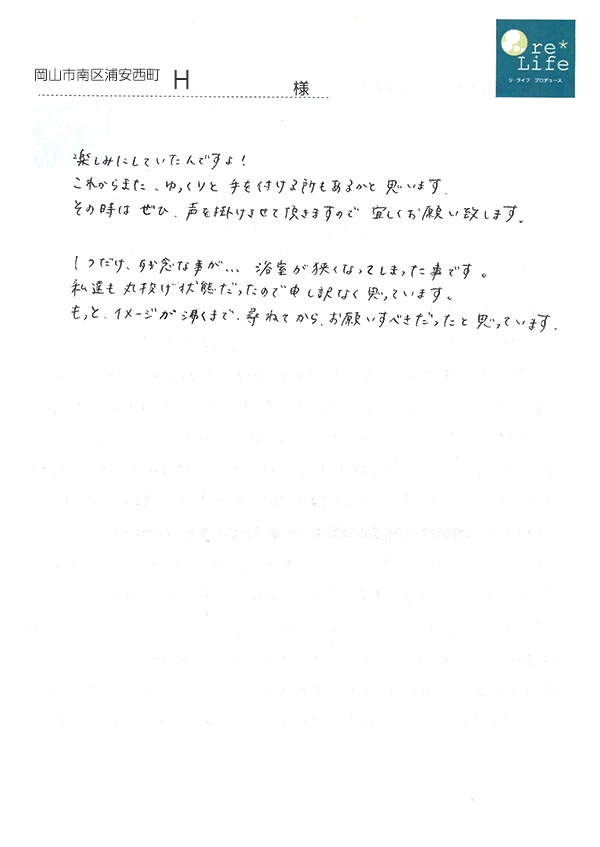 岡山市南区浦安西町 H 様
re*
Life
リ・ライフ プロデュース
楽しみにしていたんですよ!
これからまた、ゆっくりと 手を付ける所もあるかと 思います.
その時は ぜひ、声を掛けさせて頂きますので 宜しくお願い致します。
1つだけ、残念な事が... 浴室が狭くなってしまった事です。
私達も 丸投げ状態だったので申し訳なく思っています。
もっと、イメージが湧くまで、尋ねてから、お願いすべきだったと思っています.